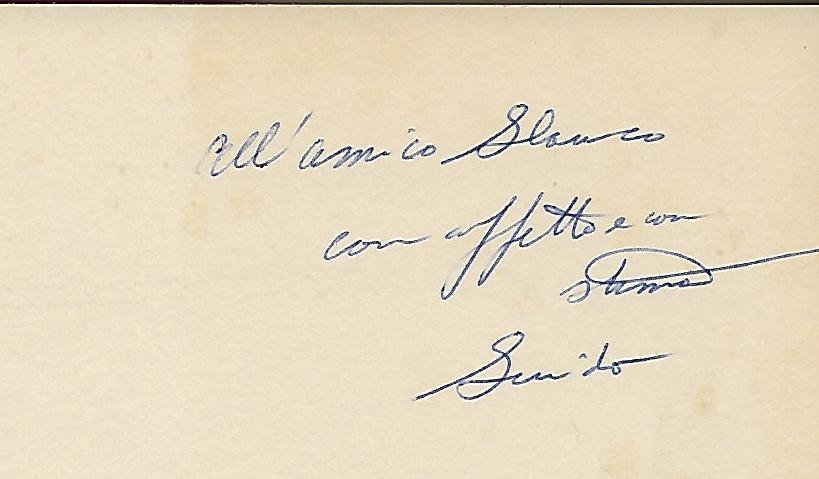 all'amico Glauco
con affetto e con
stima
Guido